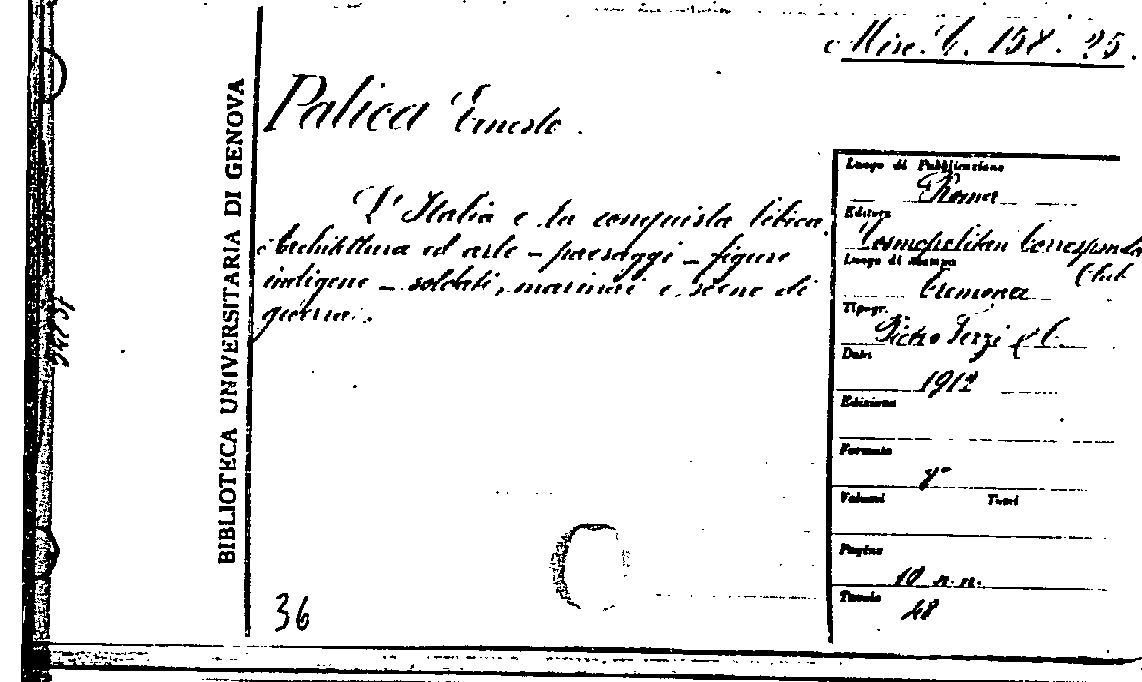 Misc. C. 158. 25.
BIBLIOTECA UNIVERSITARIA DI GENOVA
Palica Ernesto.
L'Italia e la conquista libica.
Architettura ed arte - paesaggi - figure
indigene - soldati, marinari e scene di
guerra.
Luogo di Pubblicazione
Roma
Editore
Cosmopolitan Corresponda
Club
Luogo di stampa
Cremona
Tipogr.
Pietro Fezzi & C.
Data
1912
Edizione
Formato
8°
Volumi Tomi
Pagine
10 n.n.
Tavole
48
36